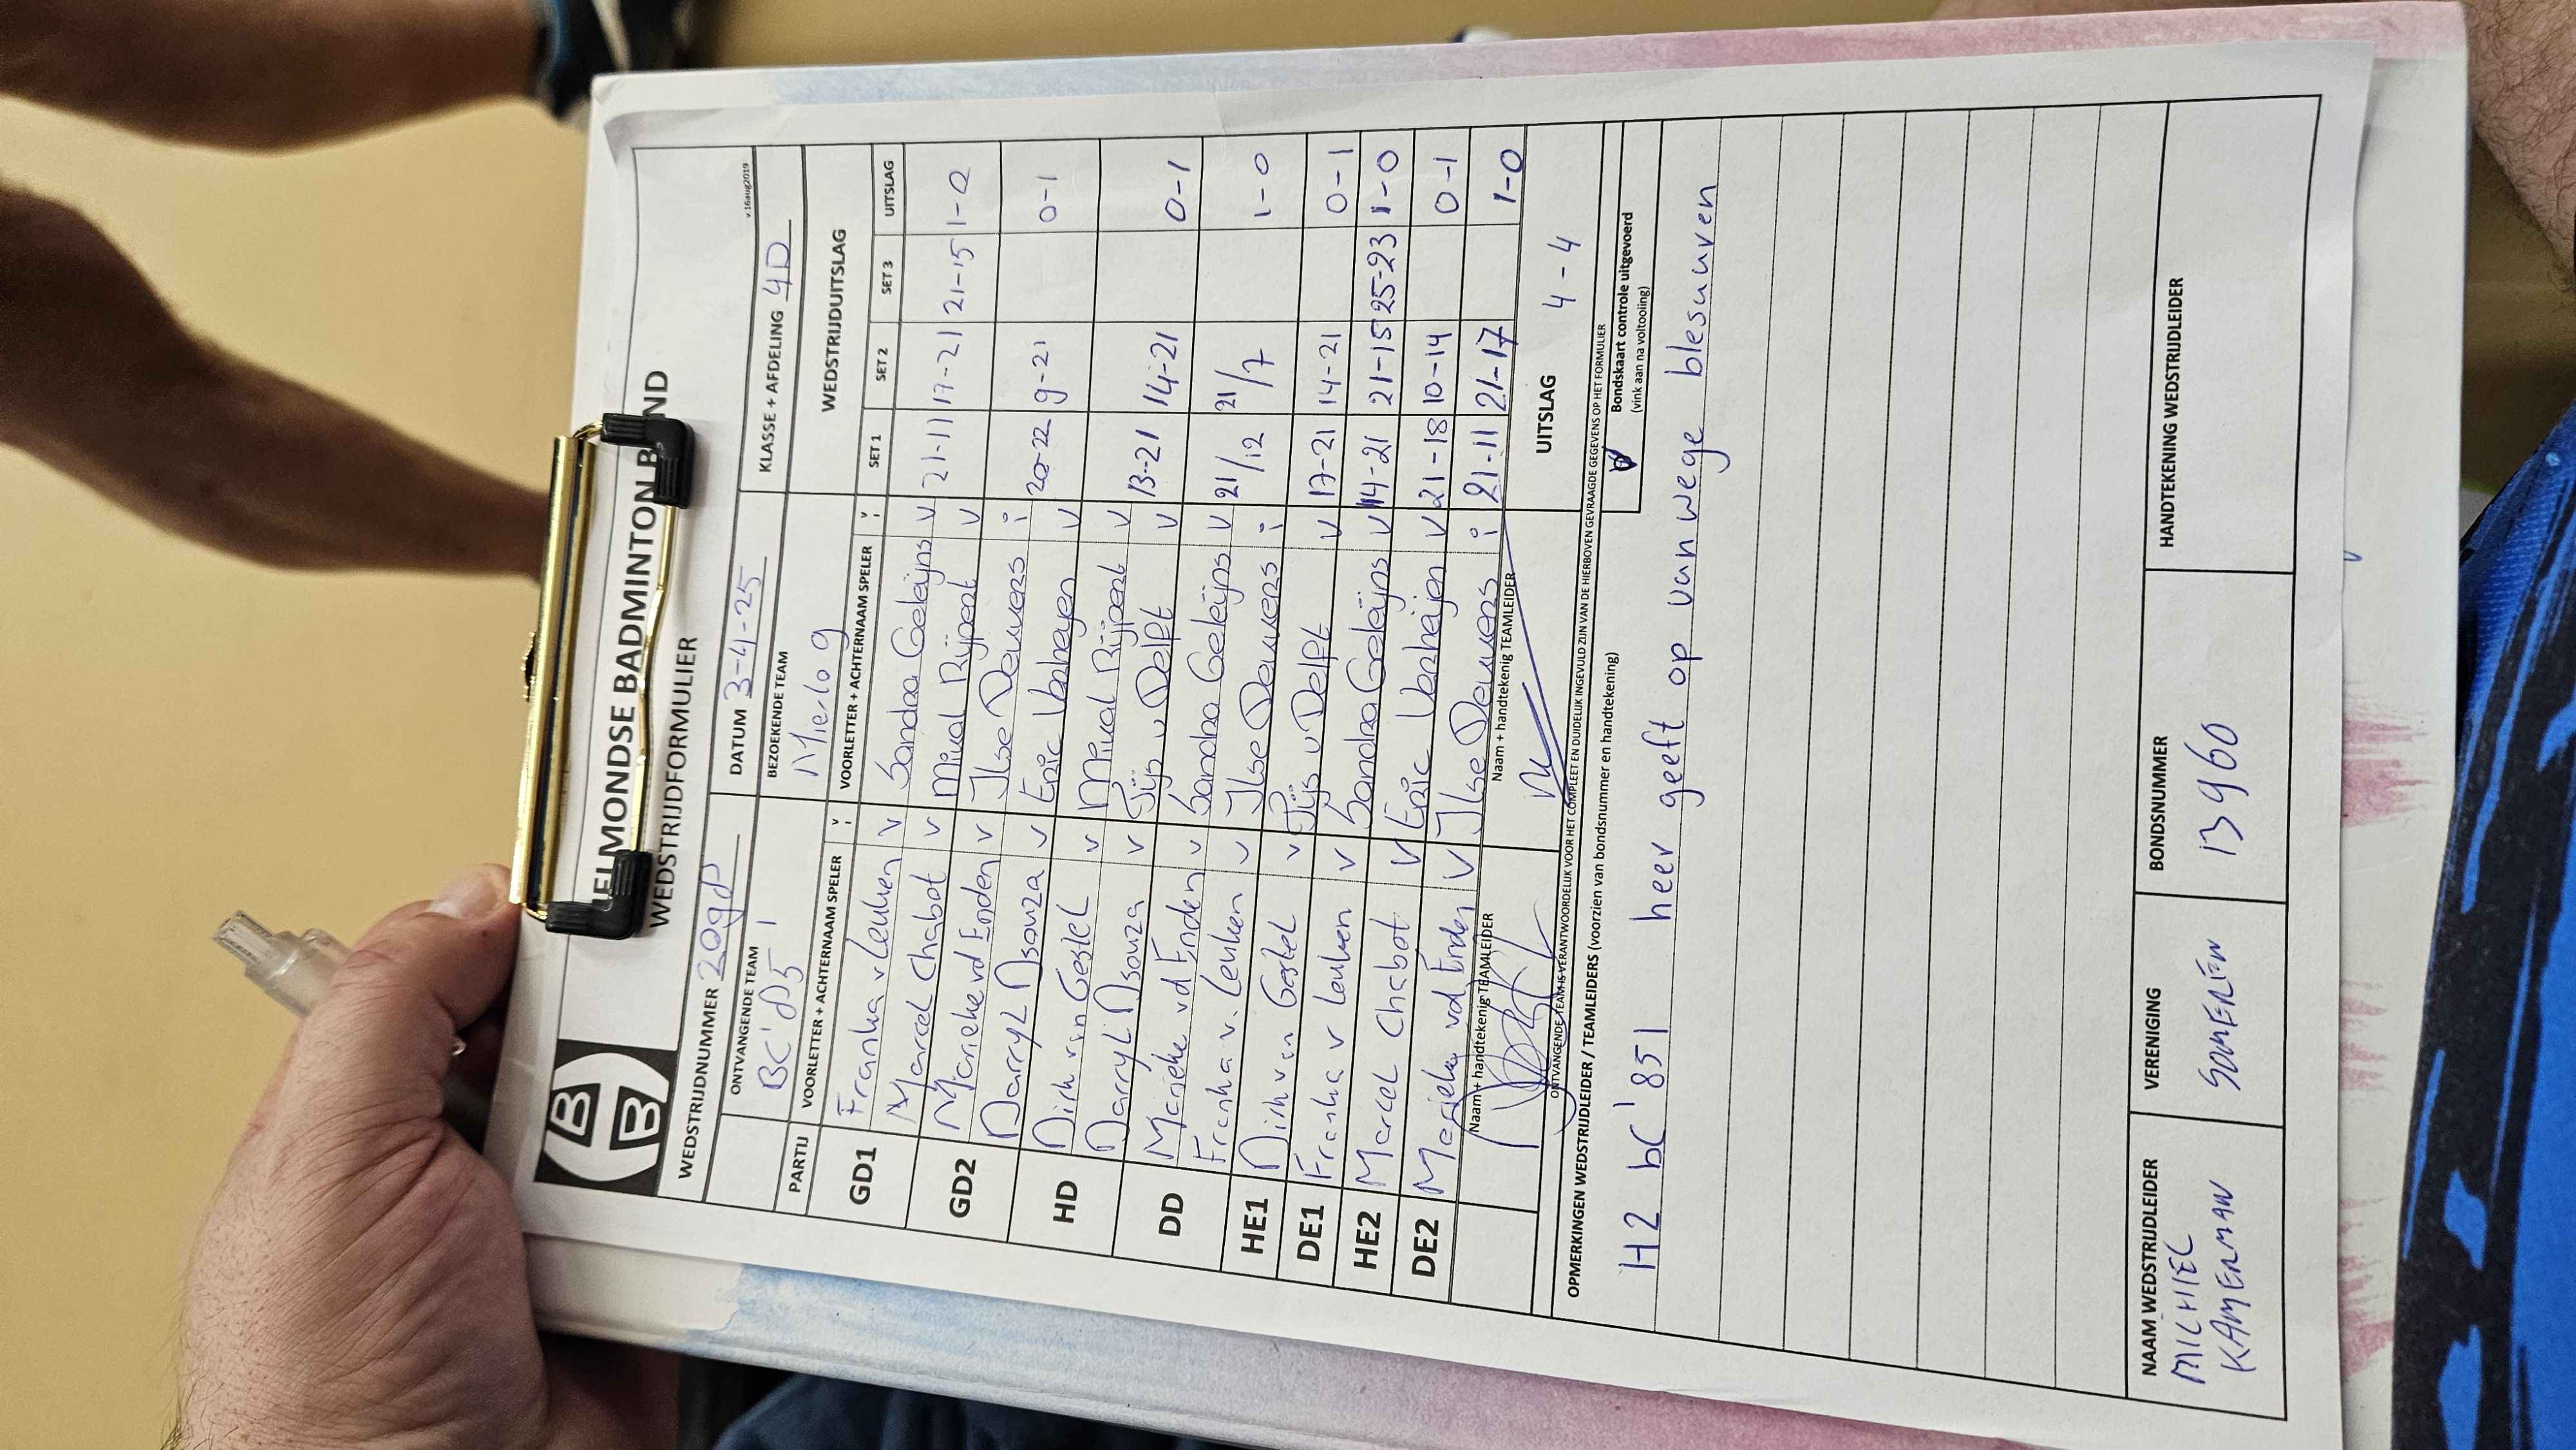 HELMONDSE BADMINTON B ND
WEDSTRIJDFORMULIER
v.16aug2019
WEDSTRIJDNUMMER DATUM 3-4-25 KLASSE + AFDELING 4D
ONTVANGENDE TEAM BEZOEKENDE TEAM
BC'85 1 Mierlo 9
WEDSTRIJDUITSLAG
PARTIJ VOORLETTER + ACHTERNAAM SPELER V i VOORLETTER + ACHTERNAAM SPELER V i SET 1 SET 2 SET 3 UITSLAG
GD1 Franka v Leuken v Sandra Geleijns v 21-11 17-21 21-15 1-0
Marcel Chabot v Rijpert v
GD2 Marieke vd Enden v Ilse Deuvens i 20-22 9-21 0-1
Darryl Dsouza v Eric Verheijen v
HD Dirk van Gestel v Rijpert v 13-21 14-21 0-1
Darryl Dsouza v Tijs v Delft v
DD Marieke vd Enden v Sandra Geleijns v 21/12 21/7 1-0
Franka v. Leuken v Ilse Deuvens i
HE1 Dirk van Gestel v Tijs v Delft v 17-21 14-21 0-1
DE1 Franka v Leuken v Sandra Geleijns v 14-21 21-15 25-23 1-0
HE2 Marcel Chabot v Eric Verheijen v 21-18 10-14 0-1
DE2 Marieke vd Enden v Ilse Deuvens i 21-11 21-17 1-0
Naam + handtekenig TEAMLEIDER Naam + handtekenig TEAMLEIDER UITSLAG 4-4
ONTVANGENDE TEAM IS VERANTWOORDELIJK VOOR HET COMPLEET EN DUIDELIJK INGEVULD ZIJN VAN DE HIERBOVEN GEVRAAGDE GEGEVENS OP HET FORMULIER
OPMERKINGEN WEDSTRIJDLEIDER / TEAMLEIDERS (voorzien van bondsnummer en handtekening)
Bondskaart controle uitgevoerd
(vink aan na voltooiing)
H2 bC'85 1 heer geeft op vanwege blesuuren
NAAM WEDSTRIJDLEIDER VERENIGING BONDSNUMMER HANDTEKENING WEDSTRIJDLEIDER
MICHIEL
KAMERMAN SOMEREN 13960